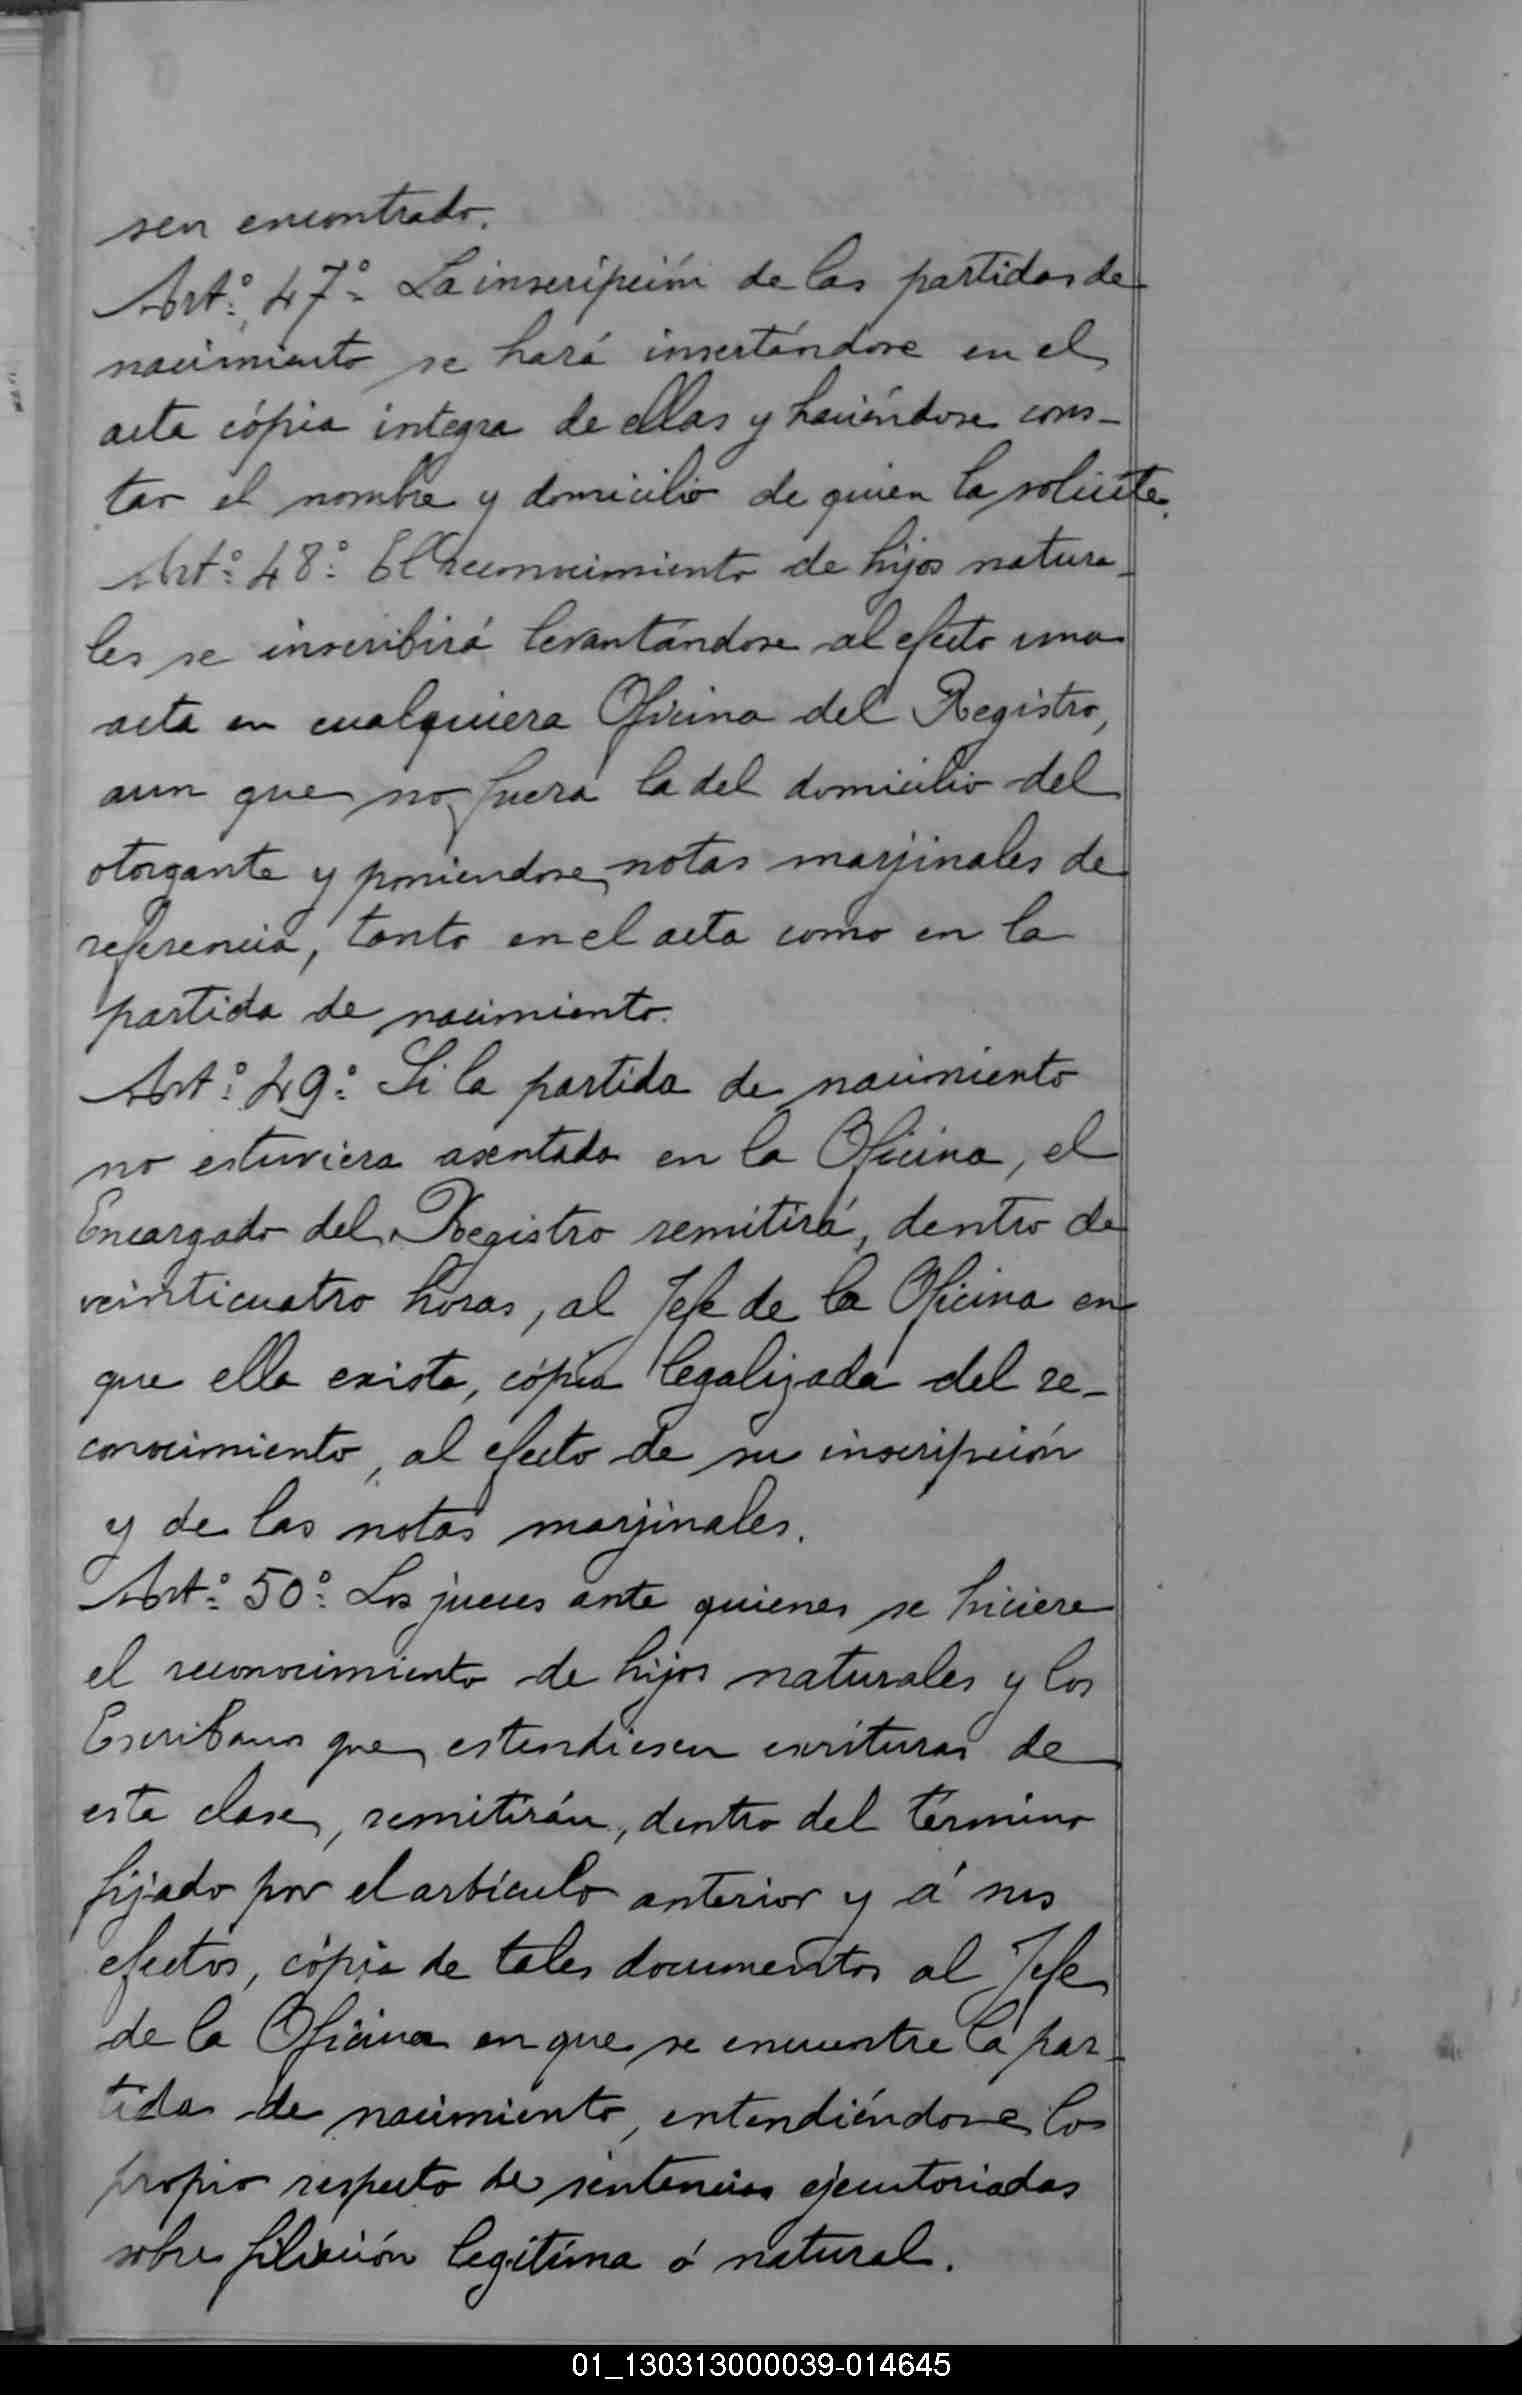 sen encontrado.
Art.º 47º La inscripción de las partidas de
nacimiento se hará insertándose en el
acta cópia integra de ellas y haciéndose cons-
tar el nombre y domicilio de quien la solicite.
Art.º 48º El reconocimiento de hijos natura-
les se inscribirá levantándose al efecto una
acta en cualquiera Oficina del Registro,
aun que no fuera la del domicilio del
otorgante y poniendose notas marjinales de
referencia, tanto en el acta como en la
partida de nacimiento.
Art.º 49º Si la partida de nacimiento
no estuviera asentada en la Oficina, el
Encargado del Registro remitirá, dentro de
veinticuatro horas, al Jefe de la Oficina en
que ella exista, cópia legalizada del re-
conocimiento, al efecto de su inscripción
y de las notas marjinales.
Art.º 50º Los jueces ante quienes se hiciere
el reconocimiento de hijos naturales y los
Escribanos que estendiesen escrituras de
esta clase, remitirán, dentro del término
fijado por el artículo anterior y á sus
efectos, cópia de tales documentos al Jefe
de la Oficina en que se encuentre la par-
tida de nacimiento, entendiéndose lo
propio respecto de sentencias ejecutoriadas
sobre filiación legítima ó natural.
01_130313000039-014645